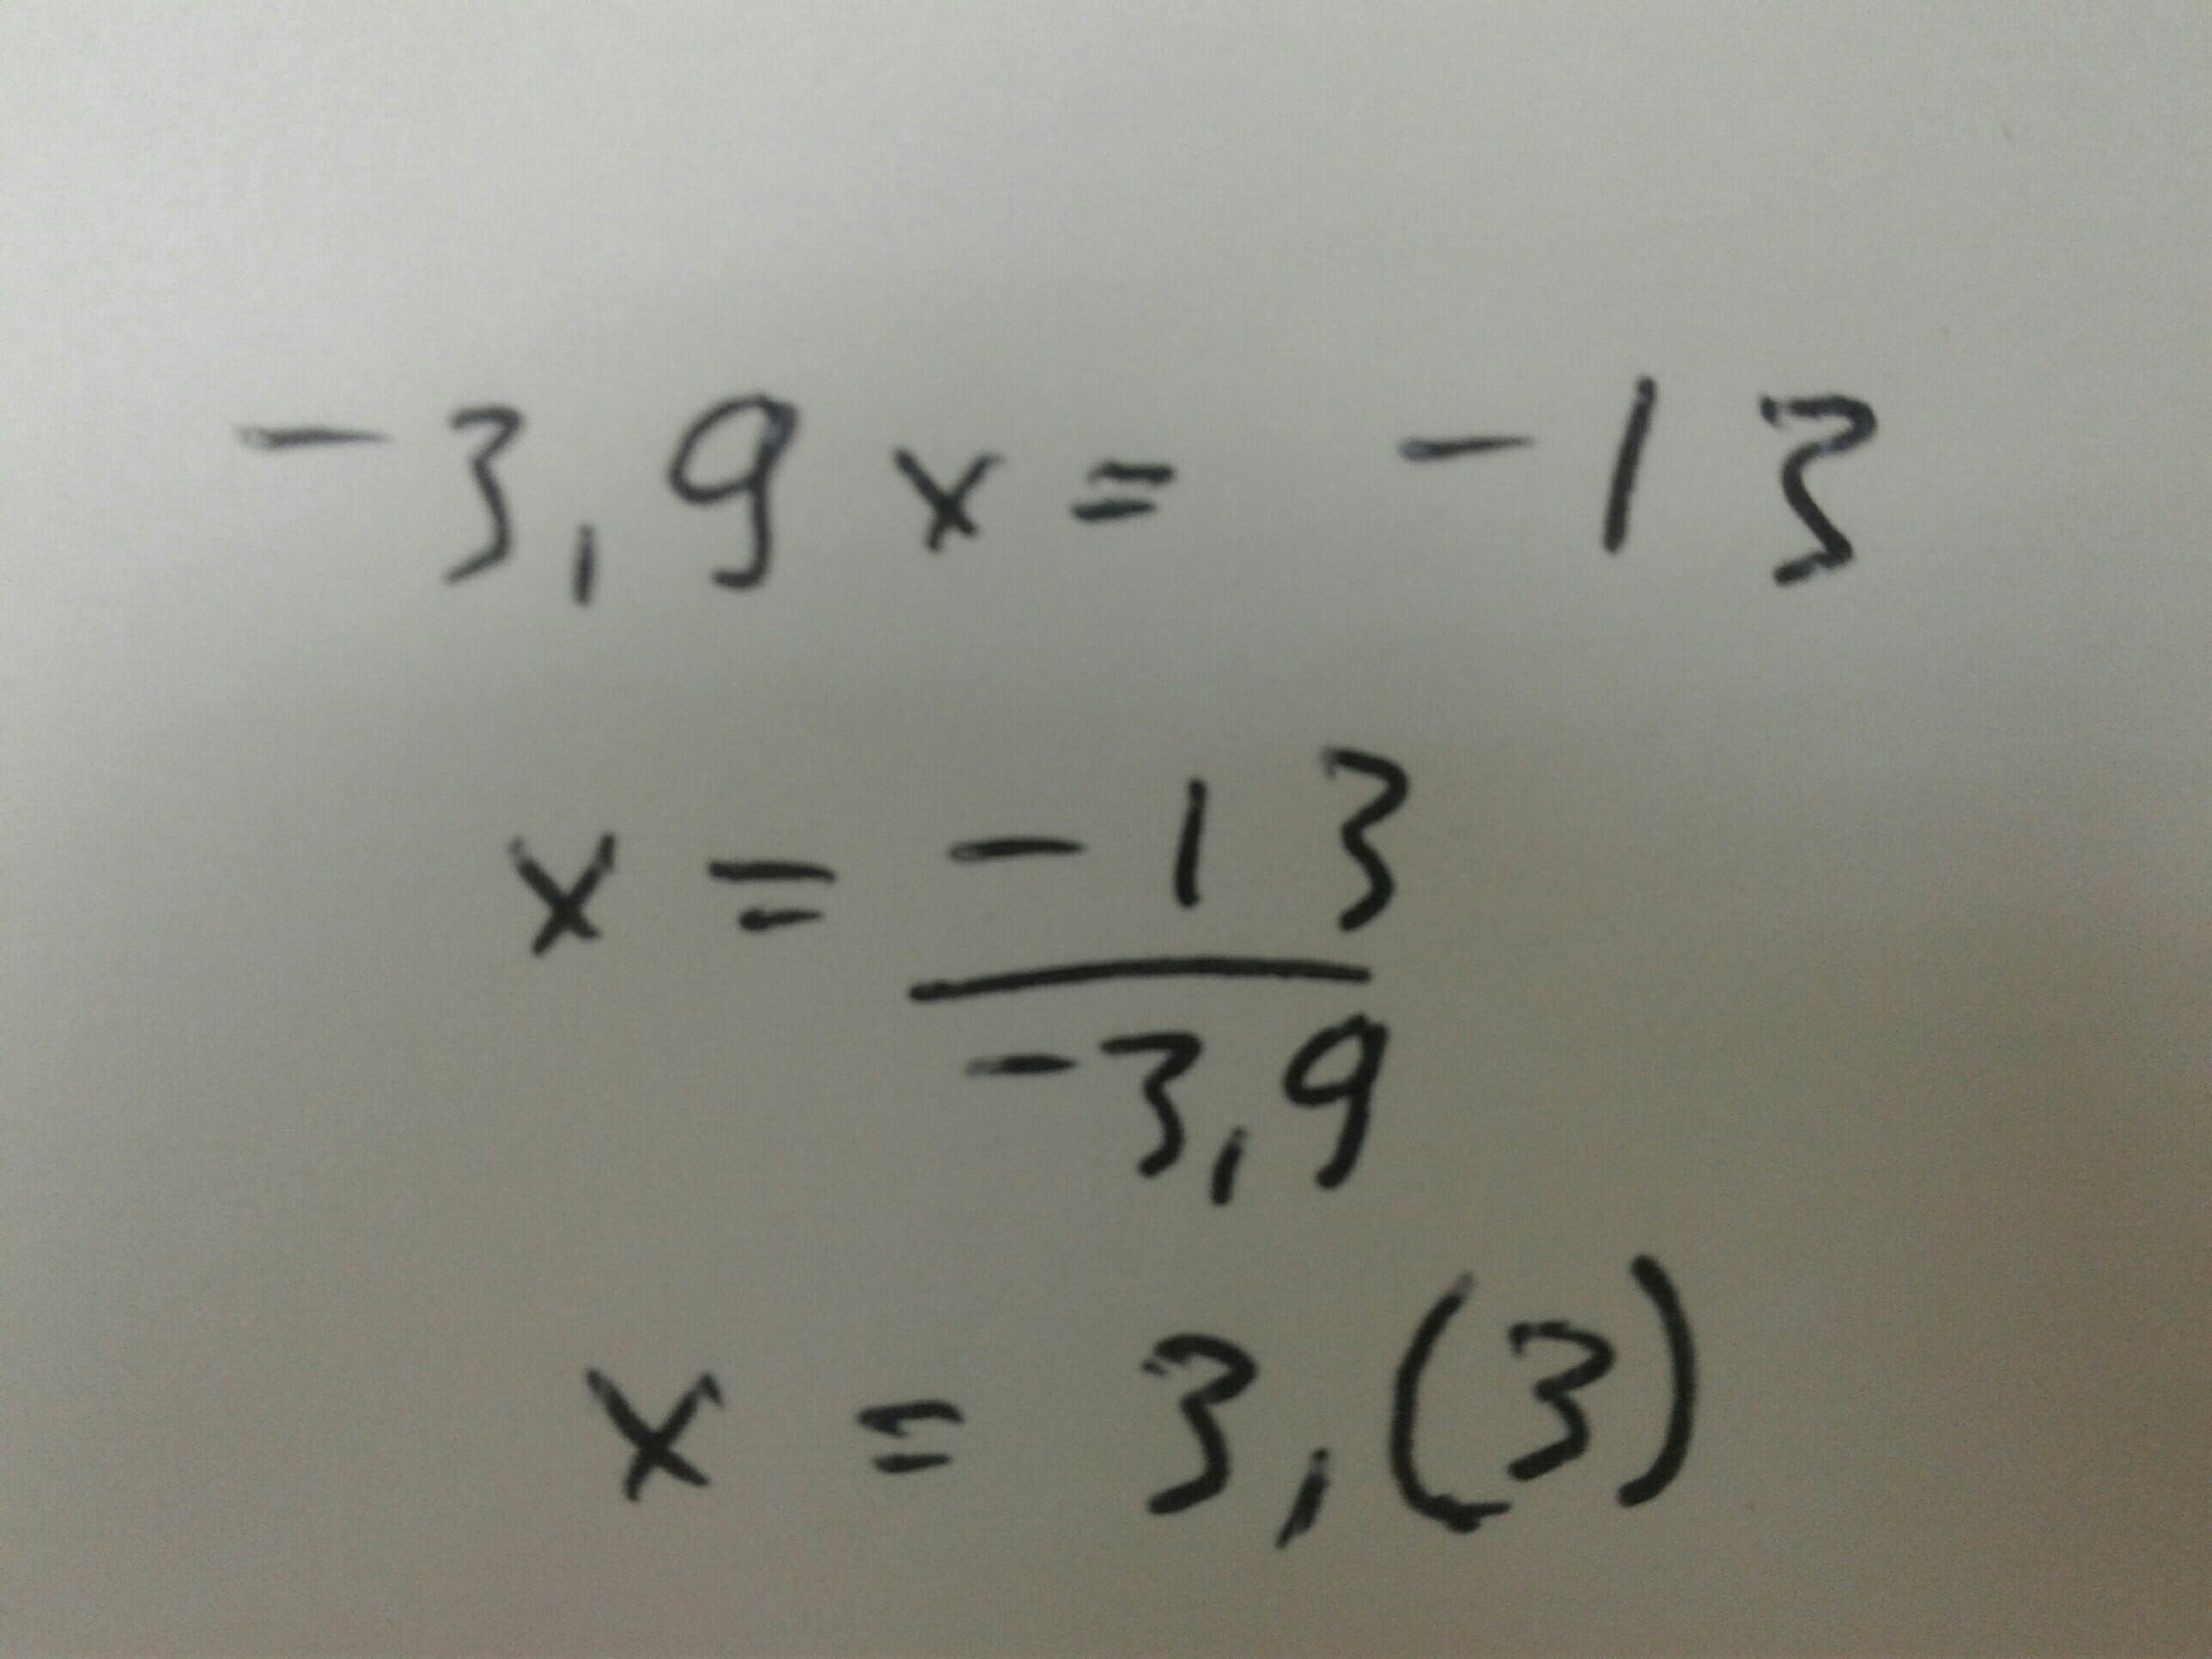 -3,9x = -13
x = -13
-3,9
x = 3,(3)